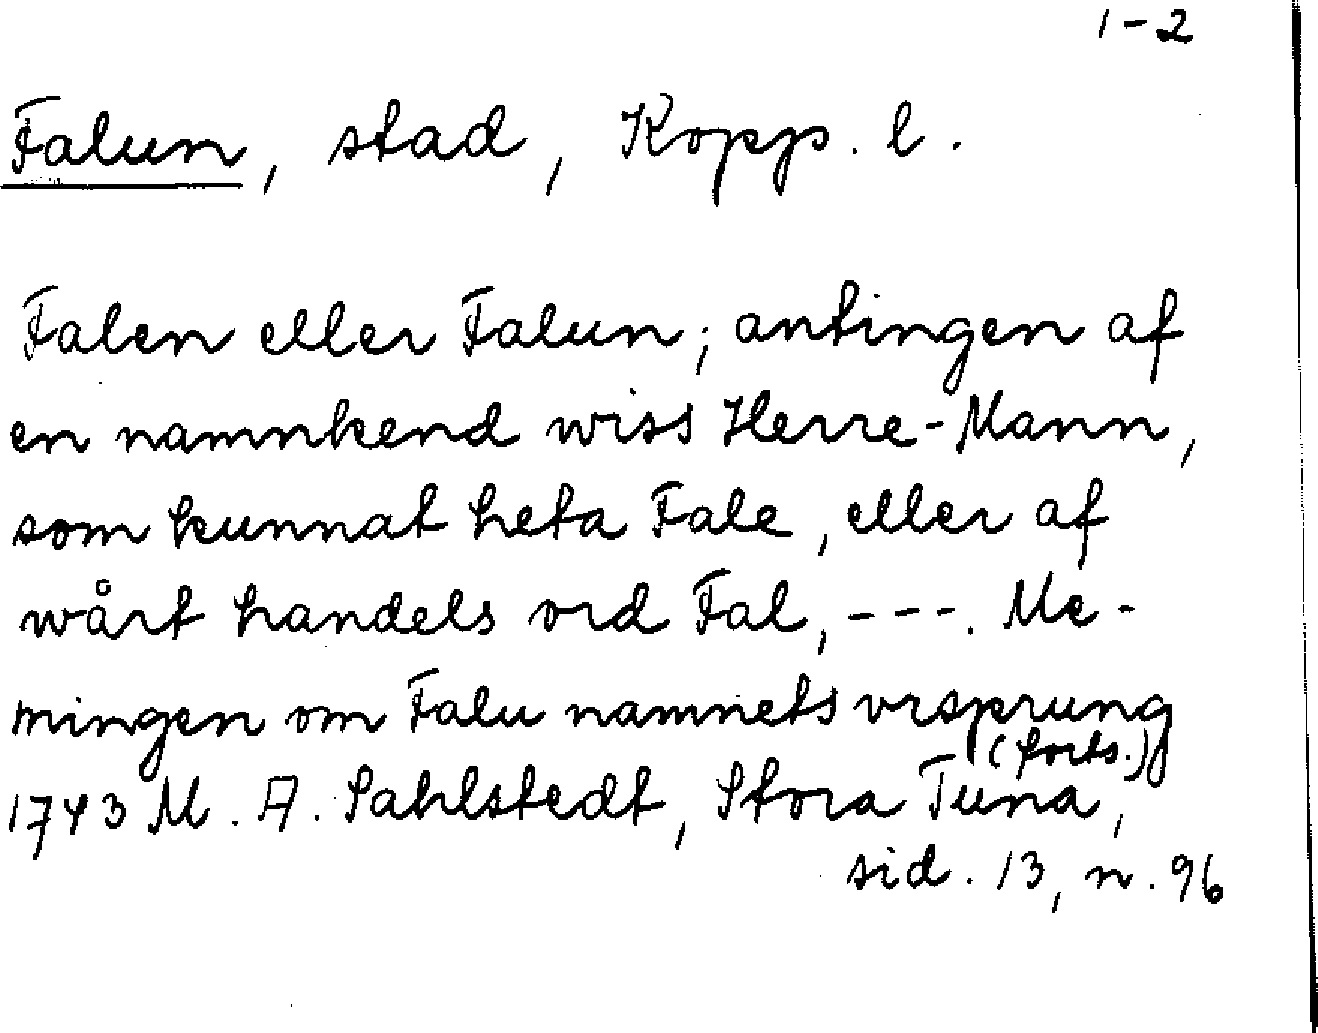 1-2
Falun, stad, Kopp. l.
Falen eller Falun; antingen af
en namnkend wiss Herre-Mann,
som kunnat heta Fale, eller af
wårt handels ord Fal, ---. Me-
mingen om Falu namnets vrsprung
(forts.)
1743 M. A. Sahlstedt, Stora Tuna,
sid. 13, n. 96